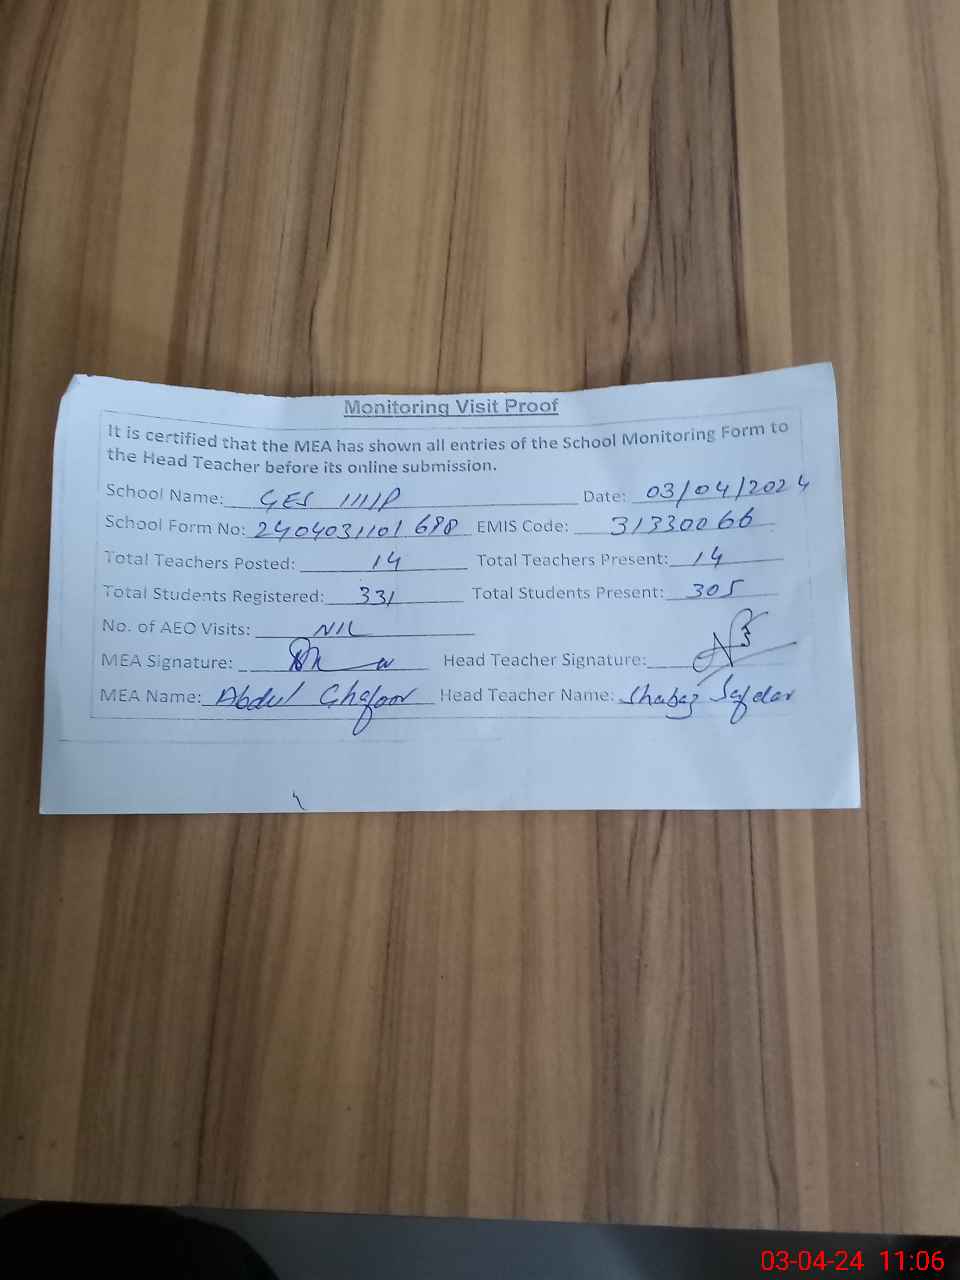 Monitoring Visit Proof
It is certified that the MEA has shown all entries of the School Monitoring Form to
the Head Teacher before its online submission.
School Name: GES 111/P Date: 03/04/2024
School Form No: 2404031101688 EMIS Code: 31330066
Total Teachers Posted: 14 Total Teachers Present: 14
Total Students Registered: 331 Total Students Present: 305
No. of AEO Visits: NIL
MEA Signature: Head Teacher Signature:
MEA Name: Abdul Ghafoor Head Teacher Name: Shabaz Safdar
03-04-24 11:06